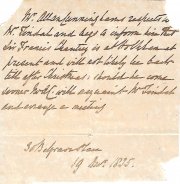 Mr. Allan Cunningham's respects to
Mr. Tindal and begs to inform him that
Sir Francis Chantrey is at
present and will not likely be back
till after Christmas; should he come
sooner Mr. AC will acquaint Mr. Tindal
and arrange a meeting
30 Belgrave Place
19 Dec. 1835.